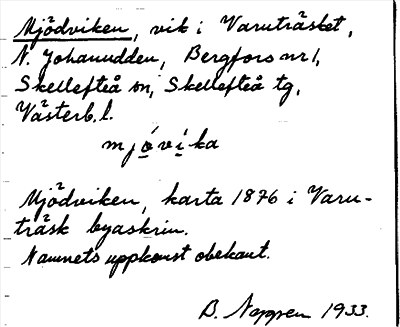 Mjödviken, vik i Varuträsket,
N. Johanudden, Bergfors nr 1,
Skellefteå sn, Skellefteå tg,
Västerb. l.
mjóvíka
Mjödviken, karta 1876 i Varu-
träsk byaskrin.
Namnets uppkomst obekant.
B. Noppen 1933.